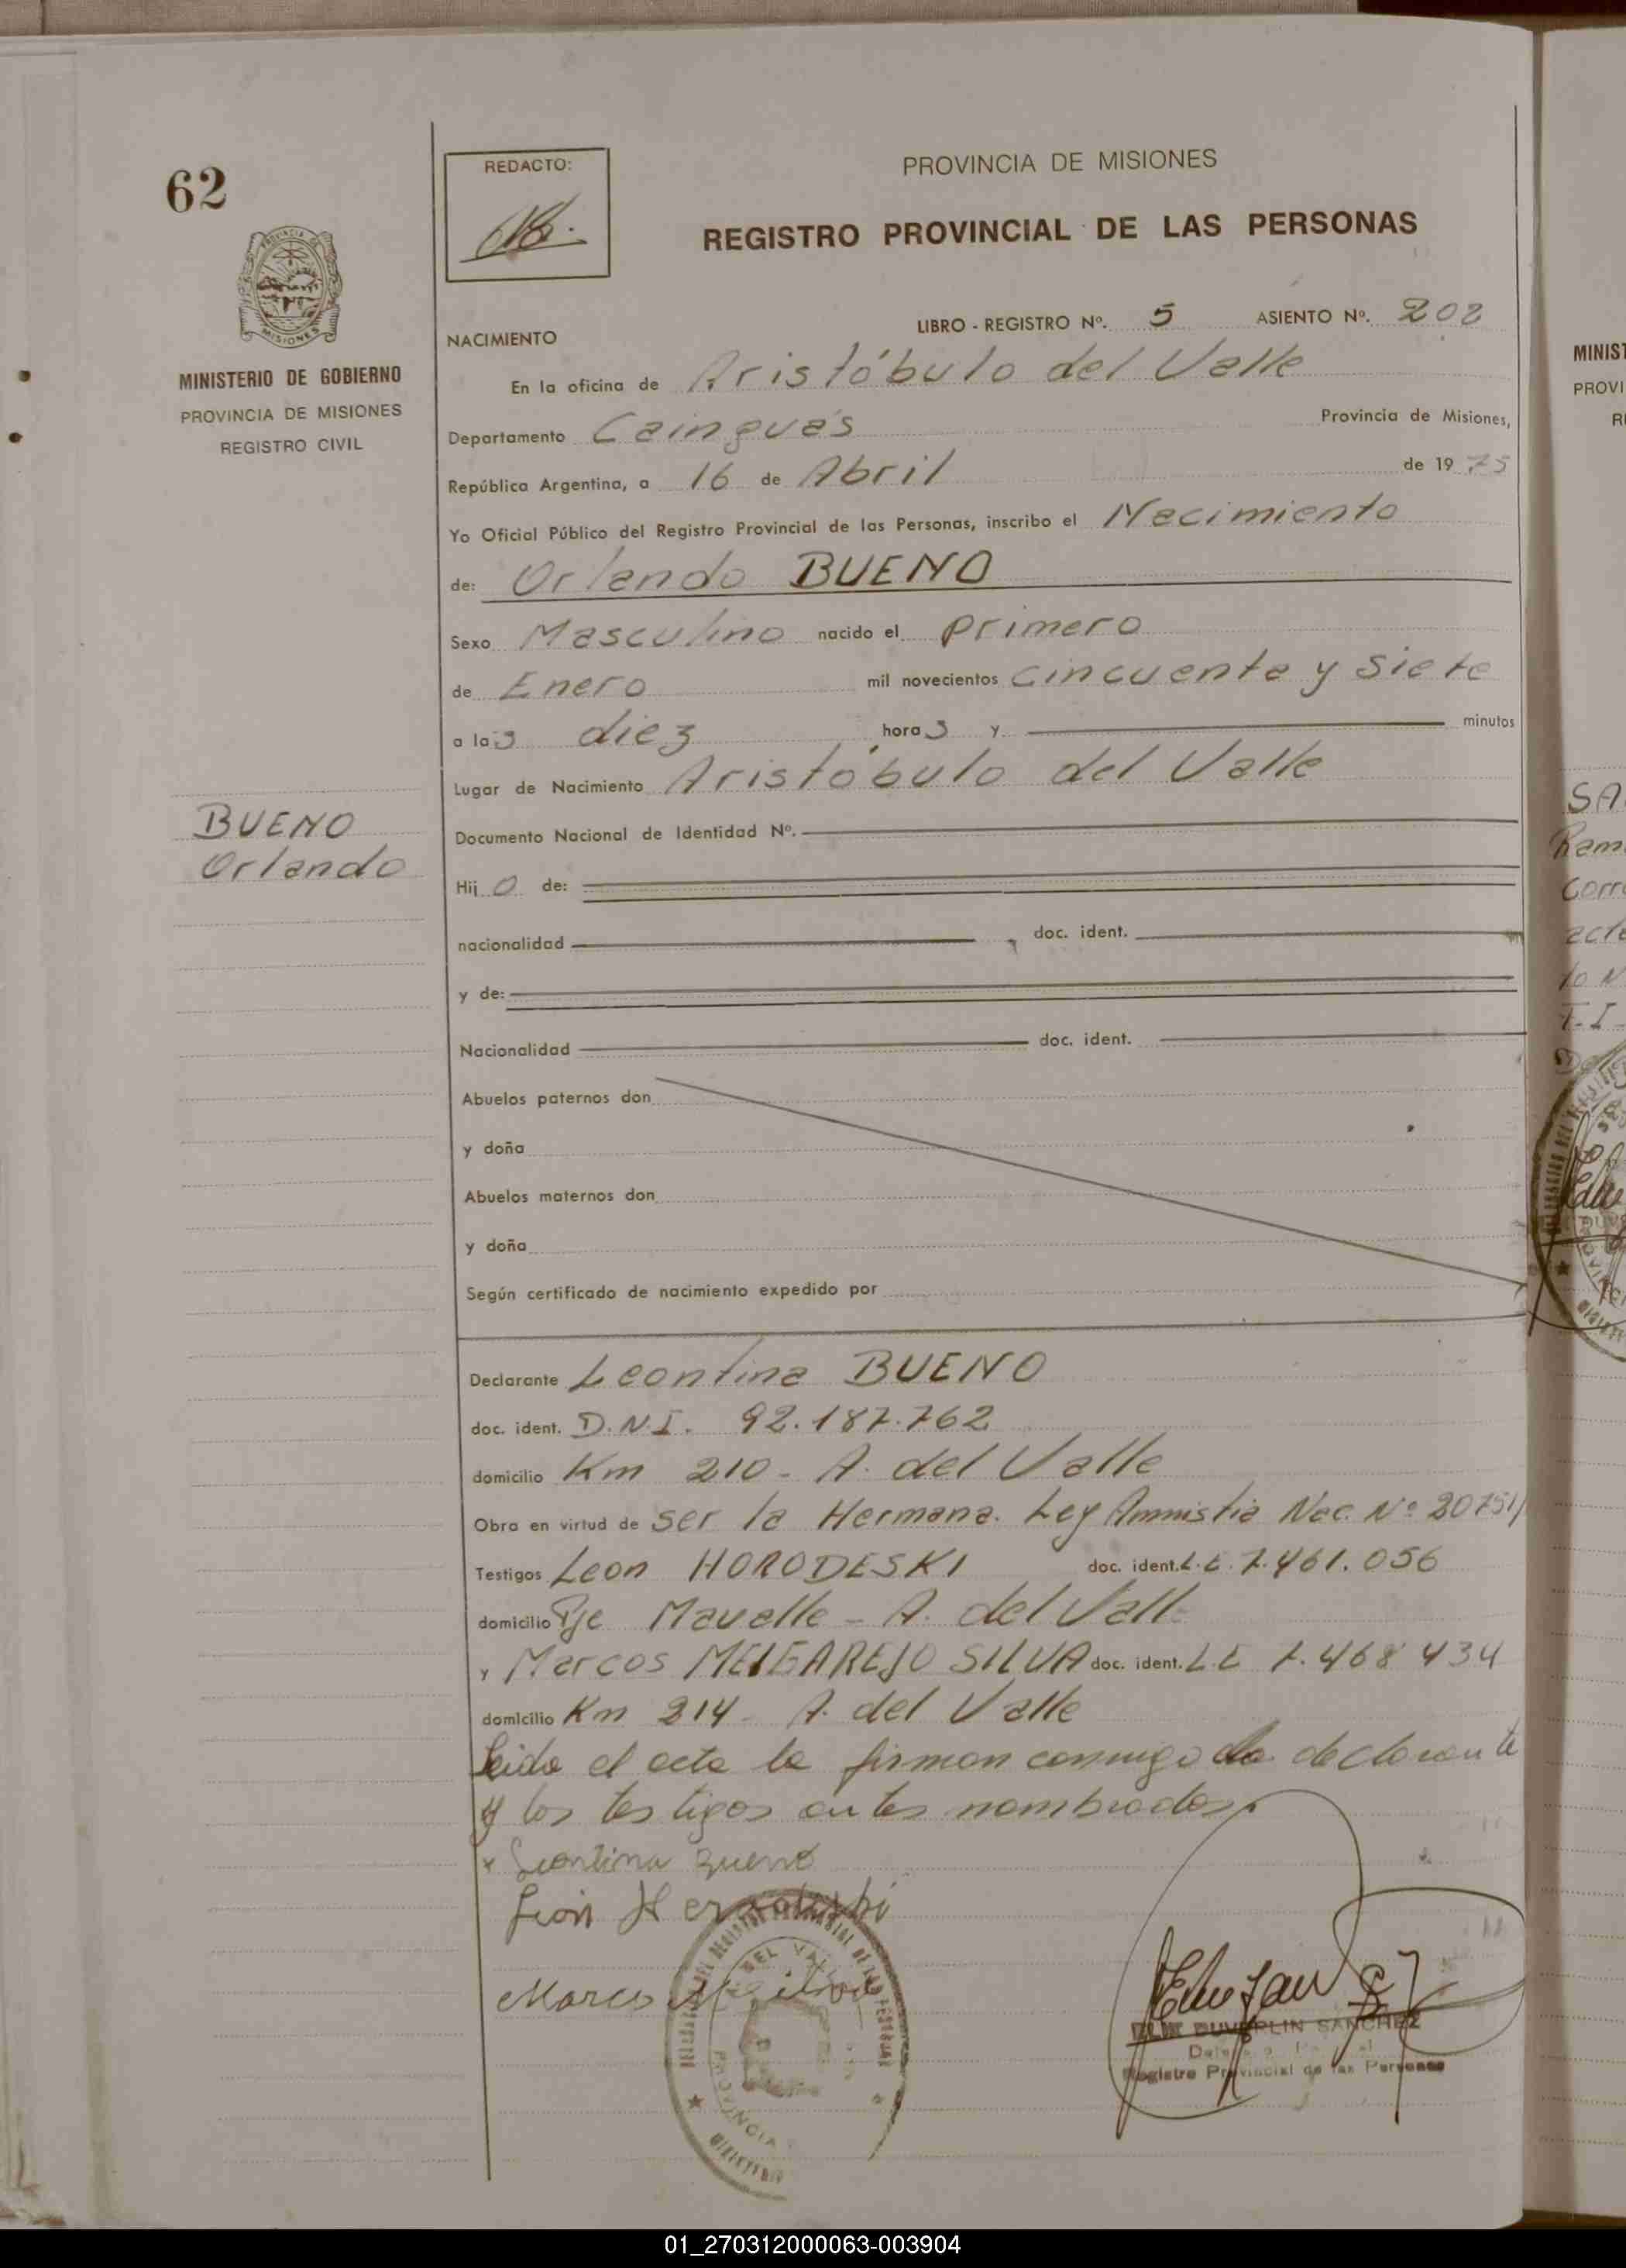 62
REDACTO:
PROVINCIA DE MISIONES
REGISTRO PROVINCIAL DE LAS PERSONAS
PROVINCIA DE
MISIONES
MINISTERIO DE GOBIERNO
PROVINCIA DE MISIONES
REGISTRO CIVIL
LIBRO - REGISTRO Nº. 5 ASIENTO Nº. 202
NACIMIENTO
En la oficina de Aristóbulo del Valle
Departamento Cainguás Provincia de Misiones,
República Argentina, a 16 de Abril de 1975
Yo Oficial Público del Registro Provincial de las Personas, inscribo el Nacimiento
de: Orlando BUENO
Sexo Masculino nacido el primero
de Enero mil novecientos cincuenta y siete
a las diez horas y minutos
Lugar de Nacimiento Aristóbulo del Valle
BUENO
Orlando
Documento Nacional de Identidad Nº.
Hijo de:
nacionalidad , doc. ident.
y de:
Nacionalidad doc. ident.
Abuelos paternos don
y doña
Abuelos maternos don
y doña
Según certificado de nacimiento expedido por
Declarante Leontina BUENO
doc. ident. D.N.I. 92.187.762
domicilio Km 210 - A. del Valle
Obra en virtud de ser la Hermana. Ley Amnistia Nac. Nº 20751/
Testigos Leon HORODESKI doc. ident. L.E. 7.461.056
domicilio Pje Mavalle - A. del Valle
y Marcos MELGAREJO SILVA doc. ident. L.E 7.468 434
domicilio Km 214 - A. del Valle
Leida el acta la firman conmigo la declarante
y los testigos antes nombrados.
x Leontina Bueno
León
Marcos
DUVERLIN SANCHEZ
Registro Provincial de las Personas
DEL VALLE
PROVINCIA
MINISTERIO
MINIST
PROVI
R
SA
Ram
Corr
acta
to N
01_270312000063-003904